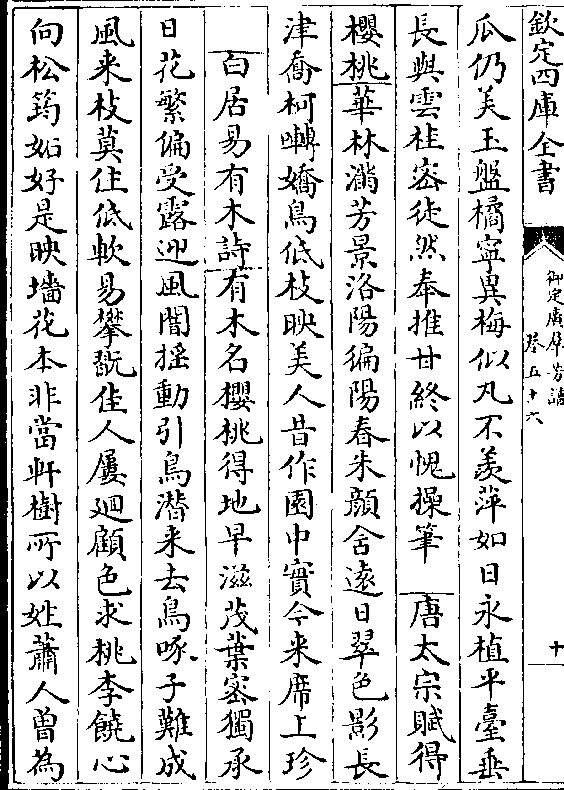 欽定四庫全書
御定廣羣芳譜
卷五十六
十
瓜仍美玉盤橘寧異梅似丸不羨萍如日永植平臺垂
長與雲桂密徒然奉推甘終以愧操筆 唐太宗賦得
櫻桃華林滿芳景洛陽徧陽春朱顔含遠日翠色影長
津喬柯囀嬌鳥低枝映美人昔作園中實今来席上珍
白居易有木詩有木名櫻桃得地早滋茂葉密獨承
日花繁偏受露迎風闇揺動引鳥潛来去鳥啄子難成
風来枝莫住低軟易攀翫佳人屢廻顧色求桃李饒心
向松筠妬好是映墻花本非當軒樹所以姓蕭人曽為